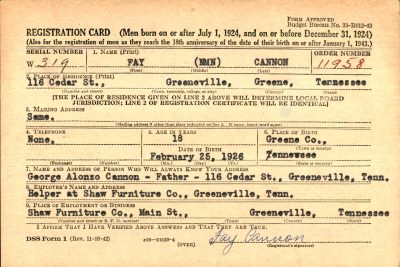 FORM APPROVED
Budget Bureau No. 33-R012-42
REGISTRATION CARD (Men born on or after July 1, 1924, and on or before December 31, 1924)
(Also for the registration of men as they reach the 18th anniversary of the date of their birth on or after January 1, 1943.)
SERIAL NUMBER 1. NAME (Print) ORDER NUMBER
W 319 FAY (NMN) CANNON 11958
(First) (Middle) (Last)
2. PLACE OF RESIDENCE (Print)
116 Cedar St., Greeneville, Greene, Tennessee
(Number and street) (Town, township, village, or city) (County) (State)
[THE PLACE OF RESIDENCE GIVEN ON LINE 2 ABOVE WILL DETERMINE LOCAL BOARD
JURISDICTION; LINE 2 OF REGISTRATION CERTIFICATE WILL BE IDENTICAL]
3. MAILING ADDRESS
Same.
4. TELEPHONE 5. AGE IN YEARS 6. PLACE OF BIRTH
None. 18 Greene Co.,
DATE OF BIRTH (Town or county)
February 25, 1926 Tennewsee
(Exchange) (Number) (Mo.) (Day) (Yr.) (State or country)
7. NAME AND ADDRESS OF PERSON WHO WILL ALWAYS KNOW YOUR ADDRESS
George Alonzo Cannon - Father - 116 Cedar St., Greeneville, Tenn.
8. EMPLOYER'S NAME AND ADDRESS
Helper at Shaw Furniture Co., Greeneville, Tenn.
9. PLACE OF EMPLOYMENT OR BUSINESS
Shaw Furniture Co., Main St., Greeneville, Tennessee
(Number and street or R. F. D. number) (Town) (County) (State)
I AFFIRM THAT I HAVE VERIFIED ABOVE ANSWERS AND THAT THEY ARE TRUE.
DSS Form 1 (Rev. 11-16-42) (OVER) Fay Cannon
(Registrant's signature)